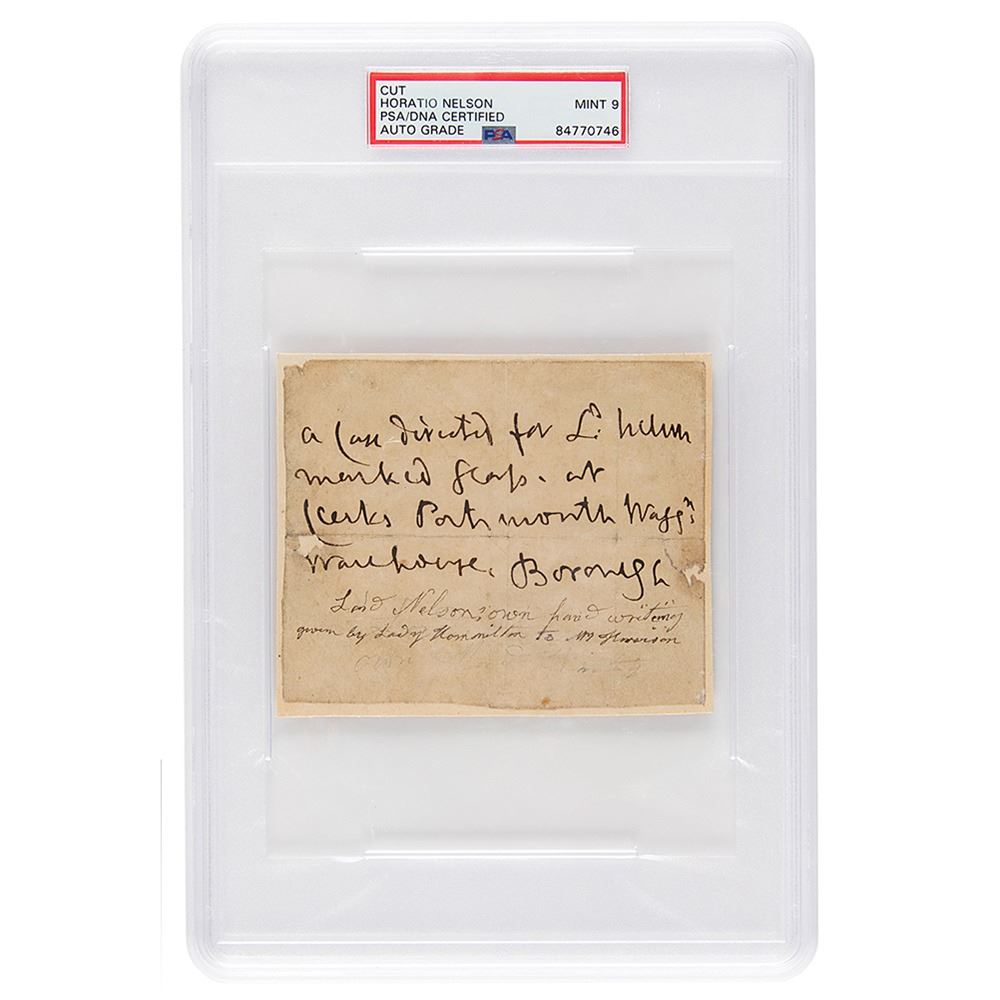 CUT
HORATIO NELSON MINT 9
PSA/DNA CERTIFIED
AUTO GRADE PSA 84770746
a Case directed for Ld: Nelson
marked Glass. at
Clerks Portsmouth Waggn:
Warehouse, Borough
Lord Nelson's own hand writeing
given by Lady Hammilton to Mr
own